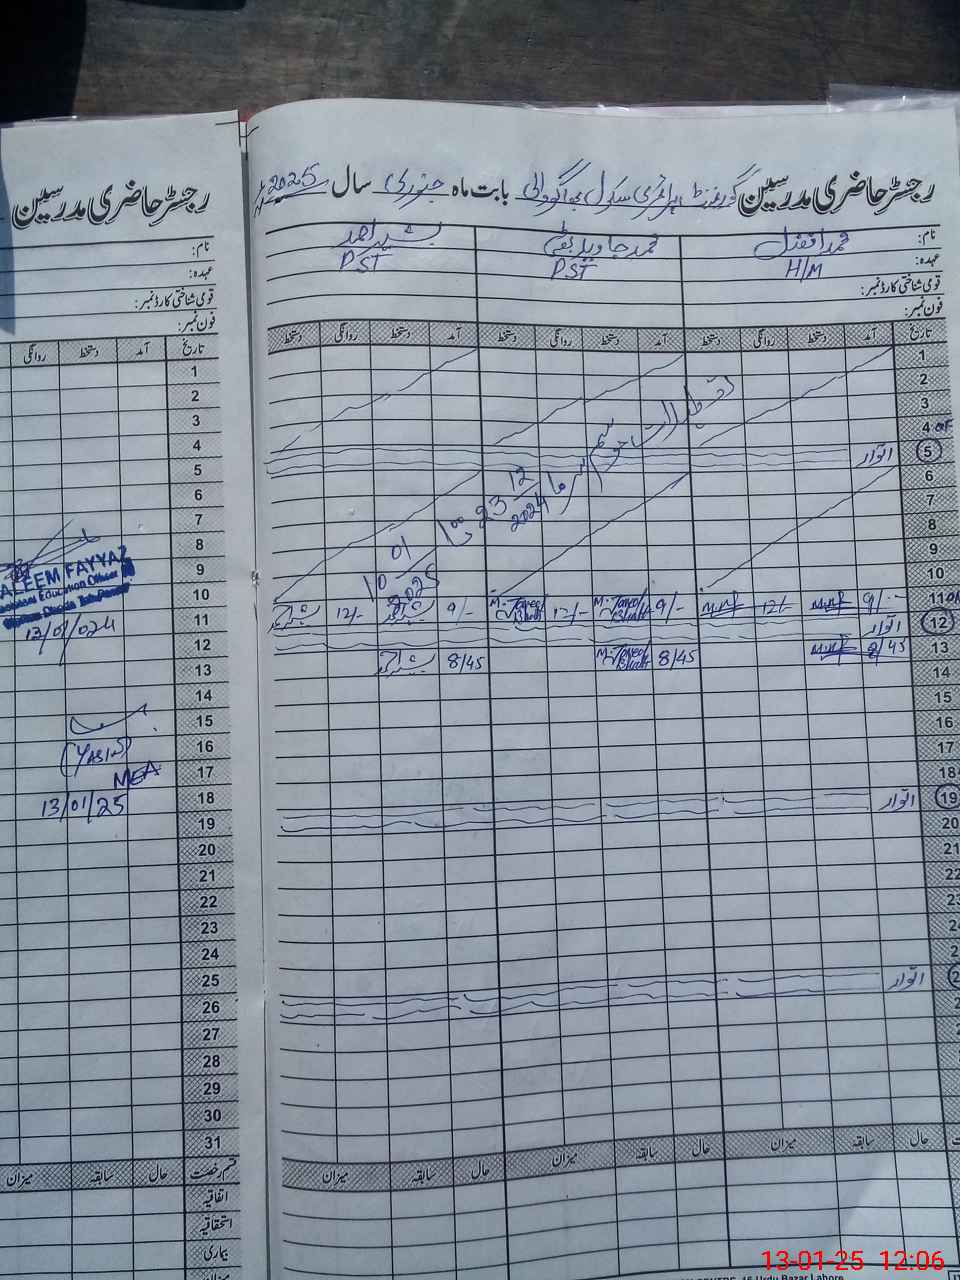 رجسٹر حاضری مدرسین گورنمنٹ پرائمری سکول بھاگووالی بابت ماہ جنوری سال 2025
نام: محمد افضل محمد جاوید بھٹی بشیر احمد
عہدہ: H/M PST PST
قومی شناختی کارڈ نمبر:
فون نمبر:
تاریخ آمد دستخط روانگی دستخط آمد دستخط روانگی دستخط آمد دستخط روانگی دستخط
1
2
3
4
5 اتوار
6
7
8
9
10
تعطیلات موسم سرما 23 12 2024 تا 10 01 2025
11 9/- 12/- M. Javed Bhatti 9/- 12/- M. Javed Bhatti 9/- بشیر احمد 12/- بشیر احمد
12 اتوار
13 8/45 8/45 M. Javed Bhatti 8/45 بشیر احمد
14
15
16
17
18
19 اتوار
20
21
22
23
اتوار
حال سابقہ میزان حال سابقہ میزان حال سابقہ میزان
16 Urdu Bazar Lahore
رجسٹر حاضری مدرسین
نام:
عہدہ:
قومی شناختی کارڈ نمبر:
فون نمبر:
تاریخ آمد دستخط روانگی
1
2
3
4
5
6
7
8
9
10
11
12
13
14
15
16
17
18
19
20
21
22
23
24
25
26
27
28
29
30
31
ALEEM FAYYAZ
Education Officer
13/01/024
(YASIN)
MEA
13/01/25
قسم رخصت حال سابقہ میزان
اتفاقیہ
استحقاقیہ
بیماری
میزان
13-01-25 12:06